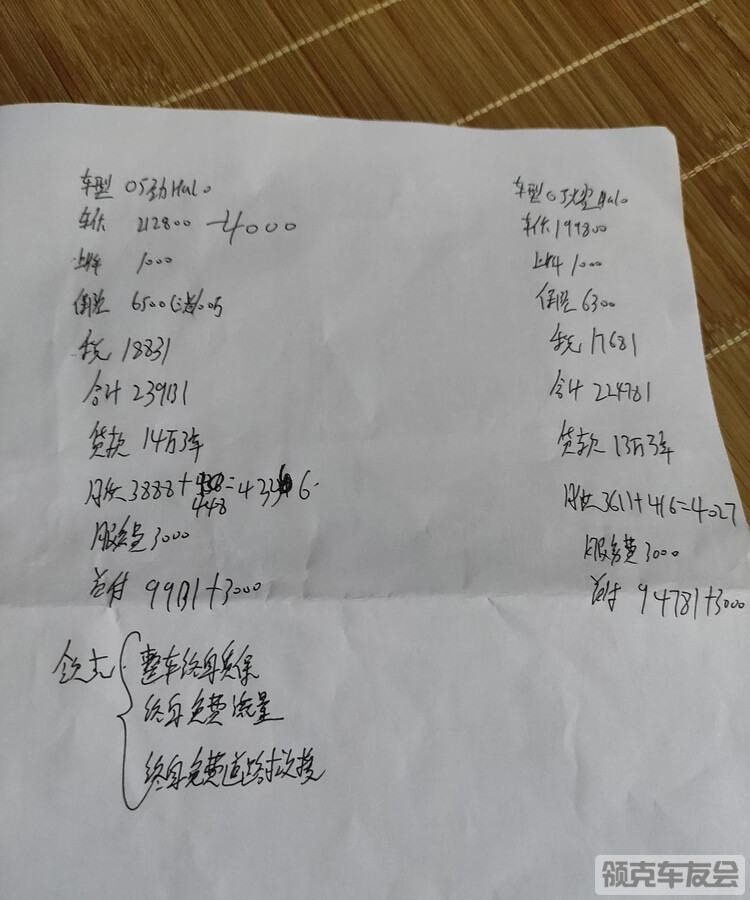 车型 05劲Halo
车价 212800 -4000
上牌 1000
保险 6500(送)005
税 18831
合计 239131
贷款 14万3年
月供 3888+448=4336
服务费 3000
首付 99131+3000
领克
整车终身质保
终身免费流量
终身免费道路救援
车型 05 Halo
车价 199800
上牌 1000
保险 6300
税 17681
合计 224781
贷款 13万3年
月供 3611+416=4027
服务费 3000
首付 94781+3000
领克车友会